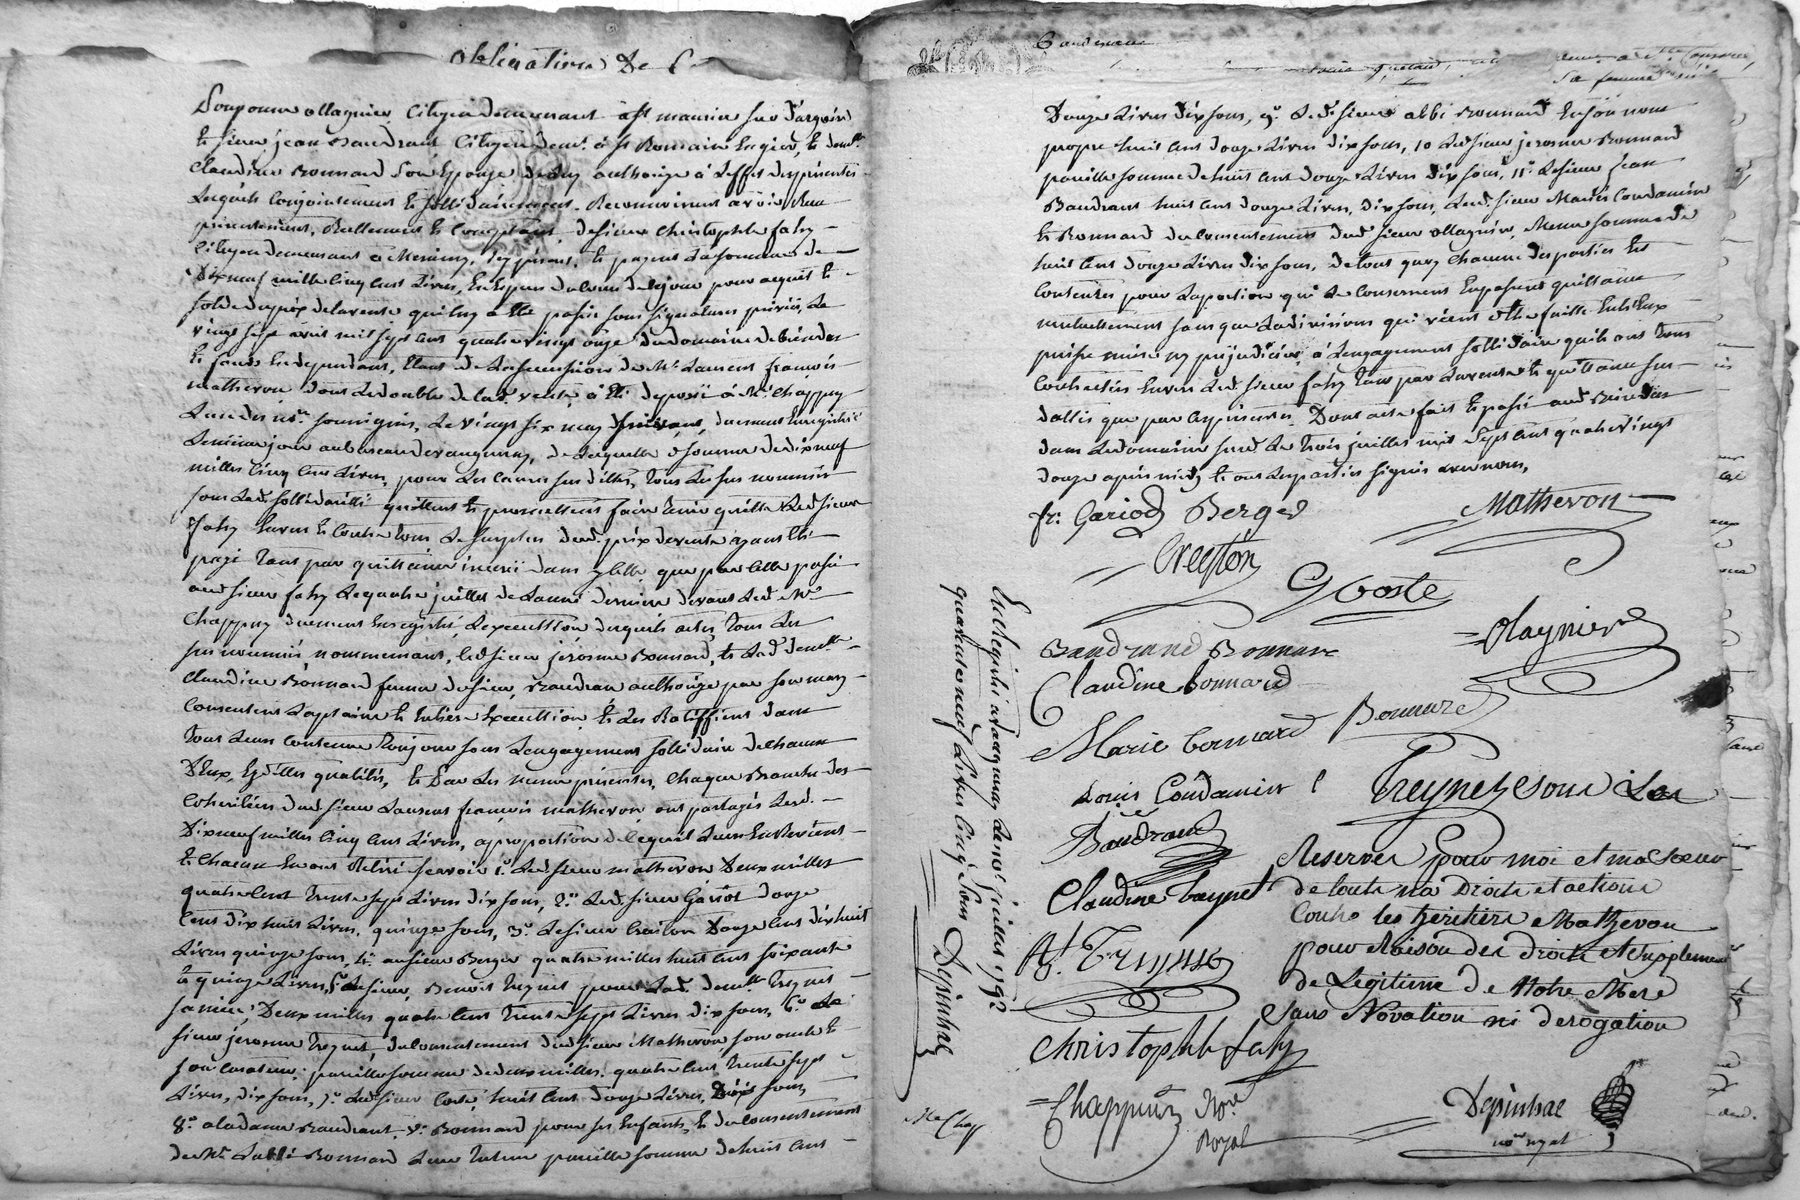 obligation De
citoyen demeurant a st maurice sur dargoire
le sieur jean Baudrand citoyen dem.t a st Romain en gier, et dem.lle
claudine Bonnard Son Epouse de luy authorizé a L'effet des présentes
Lesquels conjointement et sollidairement. Reconnoissent avoir Reçu
présentement, Réellement et comptant, de sieur christophle fahy
citoyen demeurant a Messimy, icy présent, et payant La somme de
Dixneuf mille cinq cent Livres,
solde du prix de la vente qui luy a été passée sous signatures privées, Le
vingt sept avril mil sept cent quatre vingt onze du domaine de
et fonds en dependant, Etant de La succession de M.r Laurent françois
matheron, dont Le double de la d. vente, a été deposé a M.e chappuy
L'un des no.res soussignés, Le vingt six may suivant, duement Enregistré
Le même jour au bureau de vaugneray, de Laquelle somme de dixneuf
milles cinq cent Livres, pour Les causes sus dittes, Tous Les sus nommés
sous La d. sollidarité quittent et promettent faire tenir quitte Le d. sieur
fahy Envers et contre tous Le surplus du d. prix de vente ayant été
payé Tant par quittance inserée dans y celle que par celle passée
au d. sieur fahy Le quatre juillet de L'année dernière devant Le d. M.e
chappuy duement Enregistré, L'execution desquels actes, Tous Les
sus nommés, nommement, Led. sieur jérosme Bonnard, et La d. dem.lle
claudine Bonnard femme du sieur Baudran authorizé par son mary
consentent La pleine et Entiere Executtion, et Les Ratiffient dans
Tout Leur contenu Toujours sous L'engagement sollidaire de chacun
D'eux, Esdittes qualités, et Par Les memes présentes, chaque Branche des
coheritiers du d. sieur Laurent françois matheron, ont partagés Lesd.
Dixneuf milles cinq cent Livres, a proportion de ce qu'il Leur En Revient
et chacun En ont Retiré sçavoir 1.o Led. sieur matheron Deux milles
quatre cent Trente sept Livres dix sous, 2.o Led. sieur Gariot douze
cent dix huit Livres, quinze sous, 3.o Le sieur Creiton Douze cent dix huit
Livres quinze sous, 4.o au sieur Berger quatre milles huit cent soixante
et quinze Livres, 5.o au sieur Benoit Treynet pour La d. dem.lle Treynet
sa niéce, Deux milles quatre cent Trente sept Livres dix sous, 6.o Le
sieur jerosme Treynet, du consentement du d. sieur Matheron son oncle et
son curateur, pareille somme de deux milles, quatre cent trente sept
Livres, dix sous, 7.o Led. sieur Coste, huit cent douze Livres, Dix sous,
8.o a la dame Baudrant v.e Bonnard pour ses Enfants, et du consentement
de M.r L'abbé Bonnard Leur Tuteur pareille somme de huit cent
sa femme
Douze Livres dix sous, 9.o Le d. sieur abbé Bonnard En son nom
propre huit cent douze Livres dix sous, 10 Led. sieur jerosme Bonnard
pareille somme de huit cent douze Livres dix sous, 11.o Le sieur jean
Baudrant huit cent douze Livres, Dix sous, Led. sieur Mariés Coudamin
et Bonnard du consentement du d. sieur ollagnier, Meme somme de
huit cent douze Livres dix sous, de tout quoy chacune des parties Est
contentes pour La portion qui Le concernent En passent quittance
mutuellement sans que La division qui vient d'etre faitte Entr'Eux
puisse nuire ny préjudicier à L'engagement sollidaire qu'ils ont Tous
contractés Envers Led. sieur fahy Tant par La vente et quittance sus
dattés que par ces présentes. Dont acte fait et passé
dans Le domaine susd. Le trois juillet mil sept cent quatre vingt
douze après midy et ont Les parties signés
fr. Gariod Berger Matheron
Creyton
G Coste
Baudrand Bonnare
olagnier
Claudine bonnard
Marie bonnard Bonnard
Louis Coudamin Treynet sous Les
Baudrand
Reserves pour moi et ma soeur
Claudine treynet de touts nos Droits et actions
Contre les héritiers Matheron
pour Raison des droits et supplement
de Légitime de Notre Mere
sans Novation ni derogation
Christophle fahy
Chappuis No.re Royal
Depinhac
no.re royal
Enregistré a vaugneray Le juillet 1792
quarante neuf Livres cinq sous Depinhac